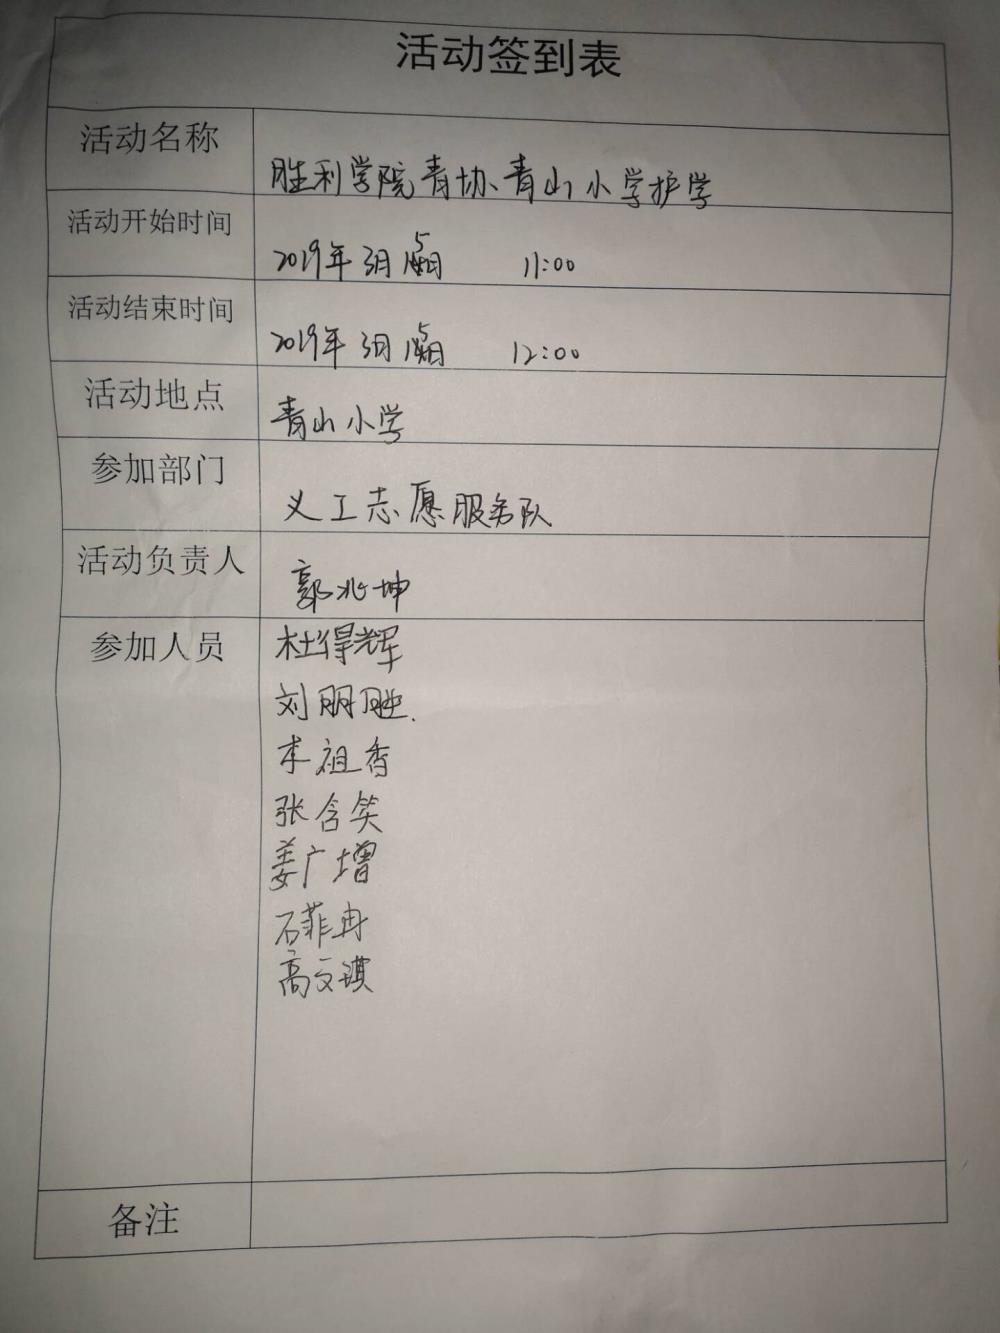 活动签到表
活动名称 胜利学院青协、青山小学护学
活动开始时间 2019年3月15日 11:00
活动结束时间 2019年3月15日 12:00
活动地点 青山小学
参加部门 义工志愿服务队
活动负责人 郭兆坤
参加人员 杜得辉
刘明胜
李祖香
张含笑
姜广增
石菲冉
高文琪
备注